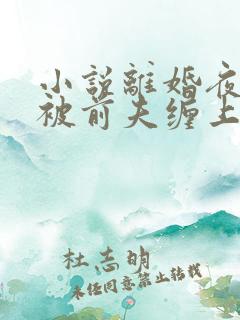 小説離婚夜
被前夫缠上
杜志明
未经同意禁止转载